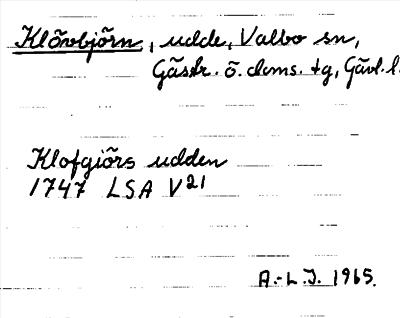 Klövbjörn, udde, Valbo sn,
Gästr. ö. doms. tg, Gävl. l.
Klofgiörs udden
1747 LSA V21
A.-L.J. 1965.